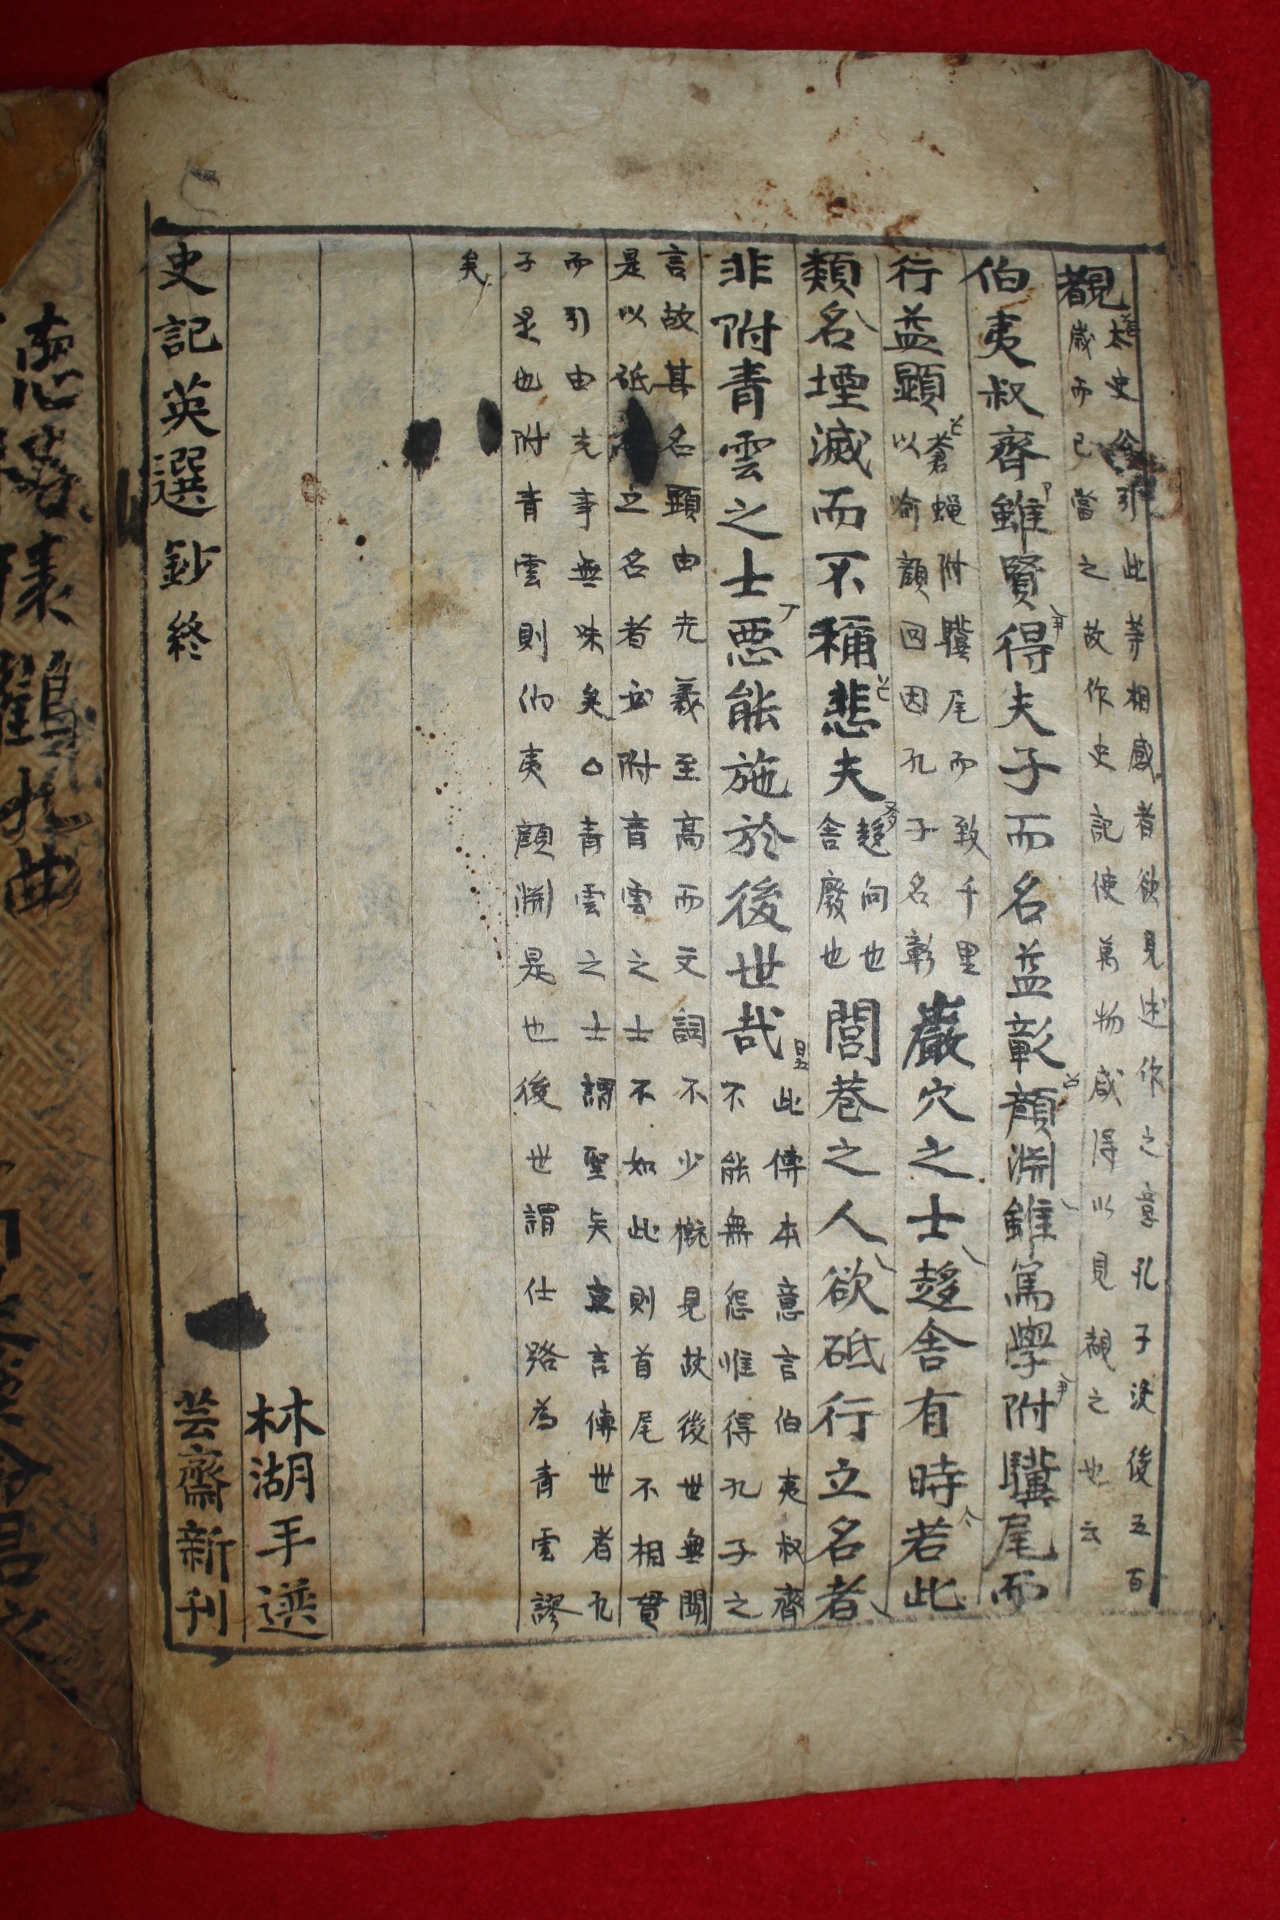 覩太史公引此等相感者欲見述作之意孔子沒後五百
歲而已當之故作史記使萬物咸得以見覩之也云
伯夷叔齊雖賢得夫子而名益彰顔淵雖篤學附驥尾而
行益顯蒼蝿附驥尾而致千里
以喻顔回因孔子名彰巖穴之士趍舍有時若此
類名堙滅而不稱悲夫趍向也
舍廢也閭巷之人欲砥行立名者
非附青雲之士惡能施於後世哉此傳本意言伯夷叔齊
不能無怨惟得孔子之
言故其名顯由光義至高而文詞不少槪見故後世無聞
是以砥立名者附青雲之士不如此則首尾不相貫
而引由光事無味矣△青雲之士謂聖矣言傳世者孔
子是也附青雲則伯夷顔淵是也後世謂仕路為青雲謬
矣
林湖手選
史記英選鈔終
芸齋新刊